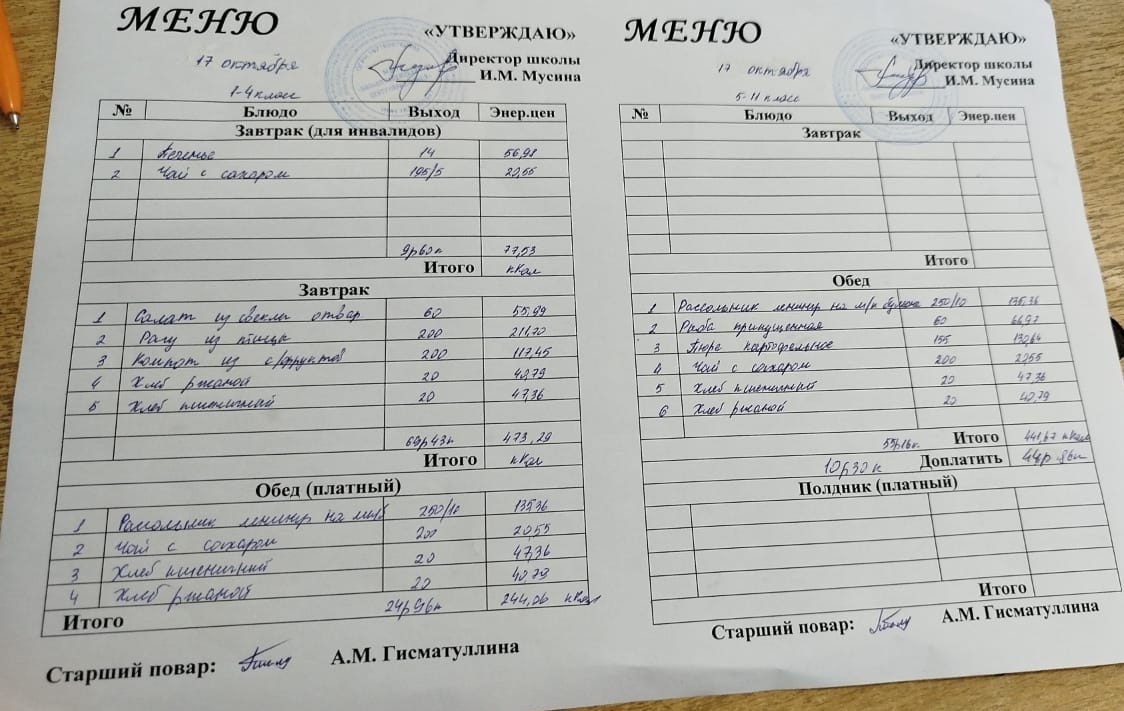 МЕНЮ
«УТВЕРЖДАЮ»
Директор школы
И.М. Мусина
17 октября
1-4 класс
№ Блюдо Выход Энер.цен
Завтрак (для инвалидов)
1 Печенье 14 56,98
2 Чай с сахаром 195/5 20,55
9р60к 77,53
Итого кКал
Завтрак
1 Салат из свеклы отвар 60 55,99
2 Рагу из птицы 200 211,70
3 Компот из с/фруктов 200 117,45
4 Хлеб ржаной 20 40,79
5 Хлеб пшеничный 20 47,36
69р43к 473,29
Итого кКал
Обед (платный)
1 Рассольник ленингр на м/б 250/10 135,36
2 Чай с сахаром 200 20,55
3 Хлеб пшеничный 20 47,36
4 Хлеб ржаной 20 40,79
Итого 24р96к 244,06 кКал
Старший повар: А.М. Гисматуллина
МЕНЮ
«УТВЕРЖДАЮ»
Директор школы
И.М. Мусина
17 октября
5-11 класс
№ Блюдо Выход Энер.цен
Завтрак
Итого
Обед
1 Рассольник ленингр на м/к бульоне 250/10 135,36
2 Рыба припущенная 60 66,97
3 Пюре картофельное 155 130,64
4 Чай с сахаром 200 20,55
5 Хлеб пшеничный 20 47,36
6 Хлеб ржаной 20 40,79
Итого 441,67 кКал
10р30к Доплатить
Полдник (платный)
Итого
Старший повар: А.М. Гисматуллина